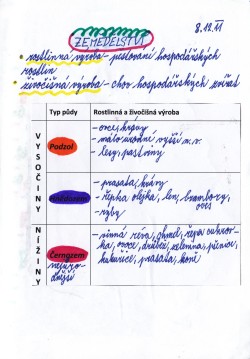 8.12.11
ZEMĚDĚLSTVÍ
• rostlinná výroba - pěstování hospodářských
rostlin
• živočišná výroba - chov hospodářských zvířat
Typ půdy
Rostlinná a živočišná výroba
VYSOČINY
Podzol
- ovce, krávy
- málo úrodné, vyšší n.v.
- lesy, pastviny
Hnědozem
- prasata, krávy
- řepka olejka, len, brambory,
oves
- ryby
NÍŽINY
Černozem
nejúro-
dnější
- vinná réva, chmel, řepa cukrov-
ka, ovoce, drůbež, zelenina, pšenice,
kukuřice, prasata, koně